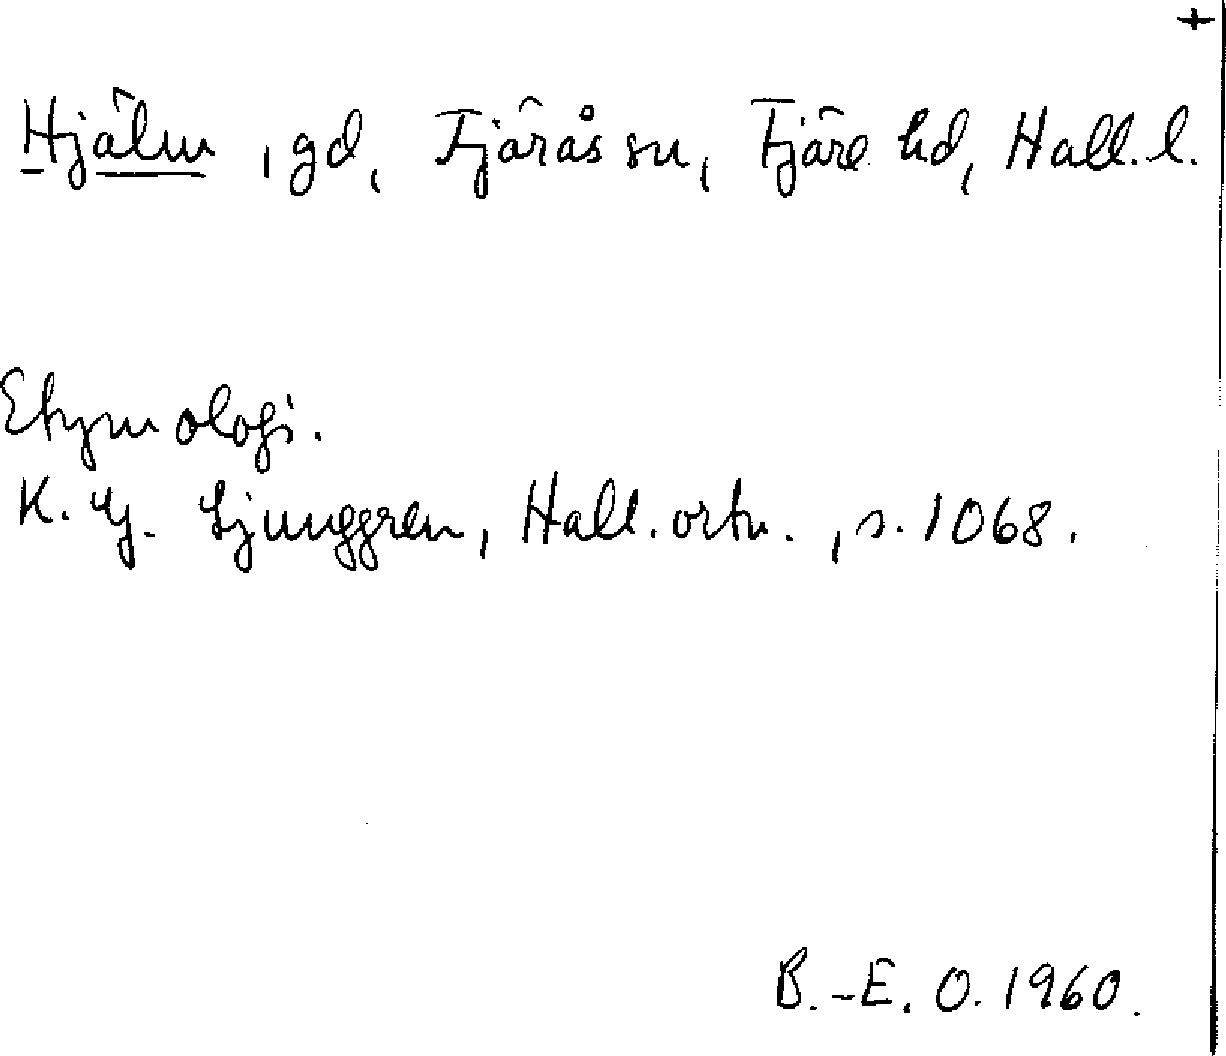 +
Hjälm, gd, Fjärås sn, Fjäre hd, Hall. l.
Etymologi.
K. G. Ljunggren, Hall. ortn., s. 1068.
B.-E. O. 1960.